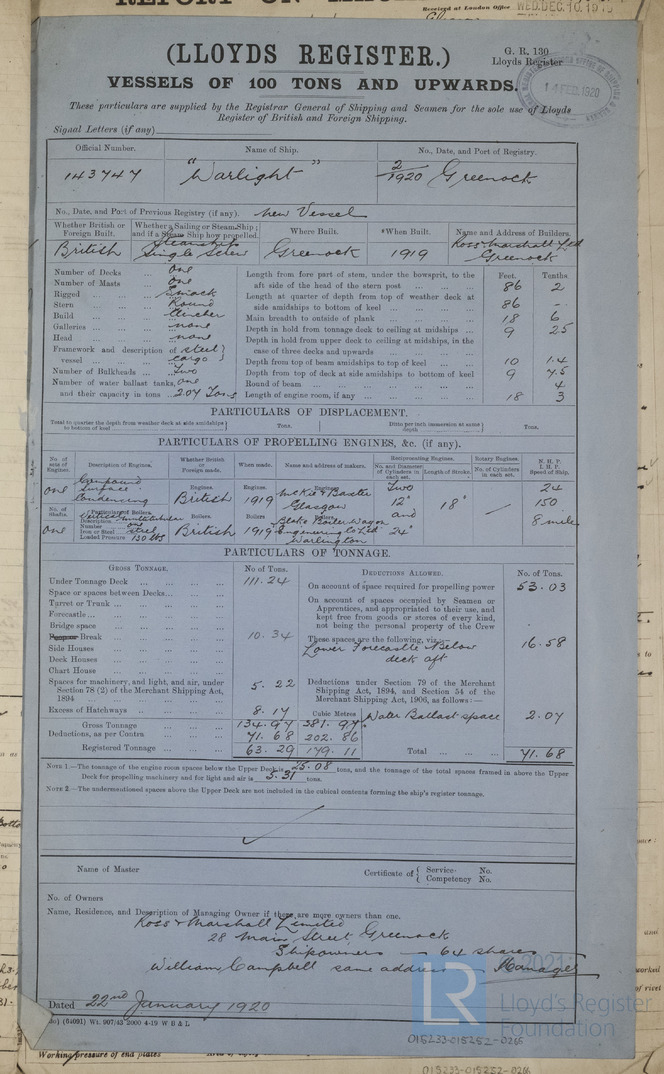 Received at London Office WED. DEC. 10. 19
(LLOYDS REGISTER.)
G. R. 130
Lloyds Register
VESSELS OF 100 TONS AND UPWARDS.
14 FEB. 1920
These particulars are supplied by the Registrar General of Shipping and Seamen for the sole use of Lloyds
Register of British and Foreign Shipping.
Signal Letters (if any)
Official Number. Name of Ship. No., Date, and Port of Registry.
143747 "Warlight" 2/1920 Greenock
No., Date, and Port of Previous Registry (if any). New Vessel
Whether British or Foreign Built. Whether a Sailing or Steam Ship; and if a Steam Ship how propelled. Where Built. *When Built. Name and Address of Builders.
British Steamship Single Screw Greenock 1919 Ross & Marshall Ltd Greenock
Number of Decks one
Number of Masts one
Rigged Smack
Stern Round
Build Clincher
Galleries none
Head none
Framework and description of vessel steel cargo
Number of Bulkheads Two
Number of water ballast tanks, one
and their capacity in tons 2.07 Tons
Feet. Tenths.
Length from fore part of stem, under the bowsprit, to the
aft side of the head of the stern post 86 2
Length at quarter of depth from top of weather deck at
side amidships to bottom of keel 86 -
Main breadth to outside of plank 18 6
Depth in hold from tonnage deck to ceiling at midships 9 25
Depth in hold from upper deck to ceiling at midships, in the
case of three decks and upwards
Depth from top of beam amidships to top of keel 10 1.4
Depth from top of deck at side amidships to bottom of keel 9 7.5
Round of beam 4
Length of engine room, if any 18 3
PARTICULARS OF DISPLACEMENT.
Total to quarter the depth from weather deck at side amidships to bottom of keel Tons. Ditto per inch immersion at same depth Tons.
PARTICULARS OF PROPELLING ENGINES, &c. (if any).
No. of sets of Engines. Description of Engines. Whether British or Foreign made. When made. Name and address of makers. Reciprocating Engines. No. and Diameter of Cylinders in each set. Length of Stroke. Rotary Engines. No. of Cylinders in each set. N. H. P. I. H. P. Speed of Ship.
one Compound Surface Condensing Engines. British Engines. 1919 Engines. McKie & Baxter Glasgow Two 12" and 24" 18" 24 150 8 miles
No. of Shafts. Particulars of Boilers. Description Number Iron or Steel Loaded Pressure
one Vertical Multitubular one Steel 130 lbs Boilers. British Boilers 1919 Boilers. Engineering Co Ltd
PARTICULARS OF TONNAGE.
GROSS TONNAGE. No of Tons. DEDUCTIONS ALLOWED. No. of Tons.
Under Tonnage Deck 111.24
Space or spaces between Decks
Turret or Trunk
Forecastle
Bridge space
Break 10.34
Side Houses
Deck Houses
Chart House
Spaces for machinery, and light, and air, under
Section 78 (2) of the Merchant Shipping Act,
1894 5.22
Excess of Hatchways 8.17
Cubic Metres
Gross Tonnage 134.97 381.97
Deductions, as per Contra 71.68 202.86
Registered Tonnage 63.29 179.11
On account of space required for propelling power 53.03
On account of spaces occupied by Seamen or
Apprentices, and appropriated to their use, and
kept free from goods or stores of every kind,
not being the personal property of the Crew
These spaces are the following, viz.:—
Lower Forecastle & Below deck aft 16.58
Deductions under Section 79 of the Merchant
Shipping Act, 1894, and Section 54 of the
Merchant Shipping Act, 1906, as follows:—
Water Ballast space 2.07
Total 71.68
NOTE 1.—The tonnage of the engine room spaces below the Upper Deck is 25.08 tons, and the tonnage of the total spaces framed in above the Upper
Deck for propelling machinery and for light and air is 5.31 tons.
NOTE 2.—The undermentioned spaces above the Upper Deck are not included in the cubical contents forming the ship's register tonnage.
Name of Master Certificate of Service. No. Competency No.
No. of Owners
Name, Residence, and Description of Managing Owner if there are more owners than one.
Ross & Marshall Limited
28 Main Street, Greenock
Shipowners — 64 shares
William Campbell same address — Manager
Dated 22nd January 1920
(64091) Wt. 907/43 2000 4-19 W B & L
© 2021
LR Lloyd's Register
Foundation
015233-015252-0266
Working pressure of end plates
015233-015252-0266